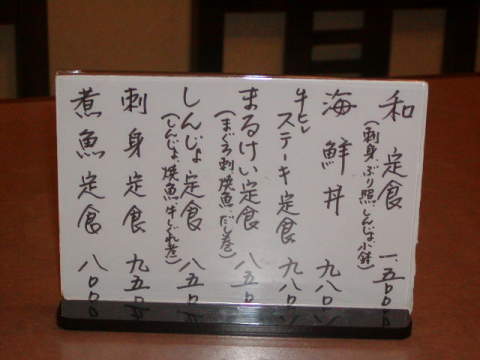 和定食 一、五〇〇〇
(刺身、ぶり照、しんじょ、小鉢)
海鮮丼 九八〇
牛ヒレステーキ定食 九八〇
まるけい定食 八五〇
(まぐろ刺、焼魚、だし巻)
しんじょ定食 八五〇
(しんじょ、焼魚、牛しぐれ煮)
刺身定食 九五〇
煮魚定食 八〇〇